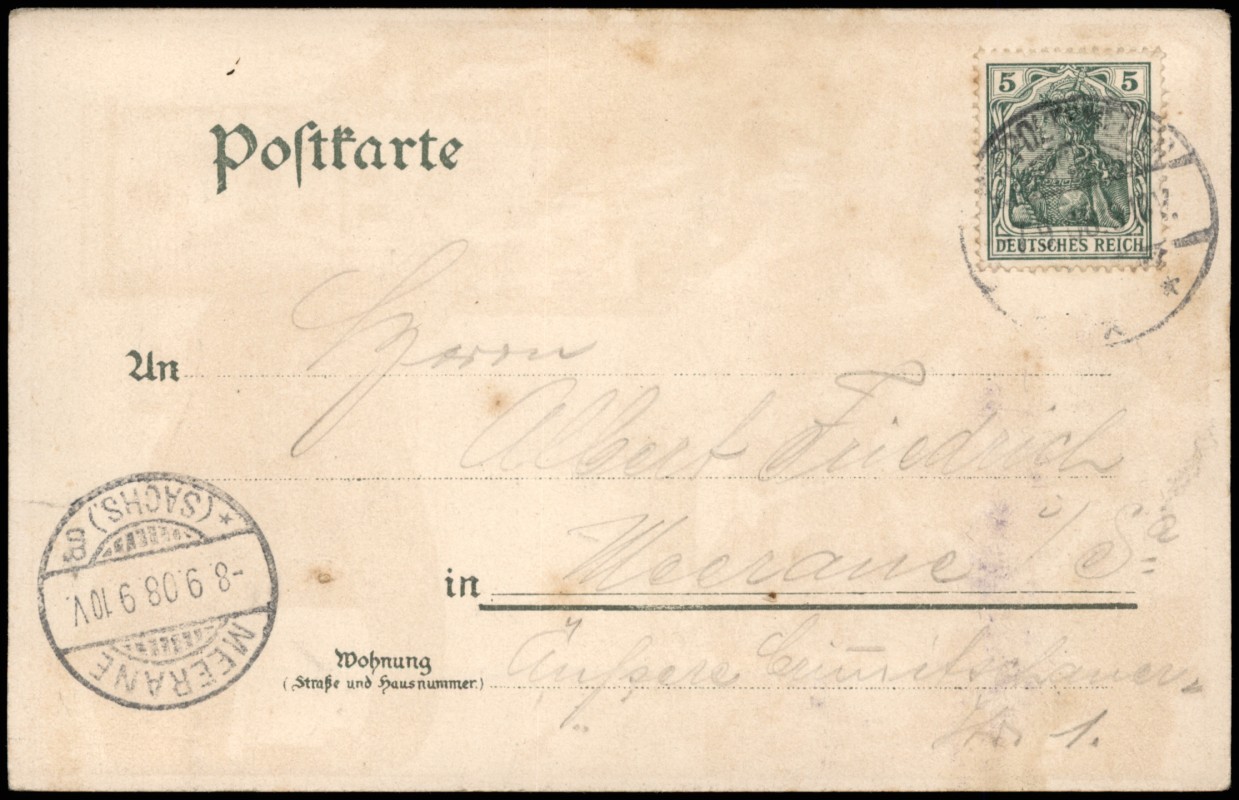 Postkarte
5 5
DEUTSCHES REICH
An Herrn
Albert Friedrich
in Meerane i/Sa
Wohnung
(Straße und Hausnummer.)
Äußere Crimmitschauer-
Str. 1.
MEERANE
-8.9.08 9 10V.
* (SACHS.)